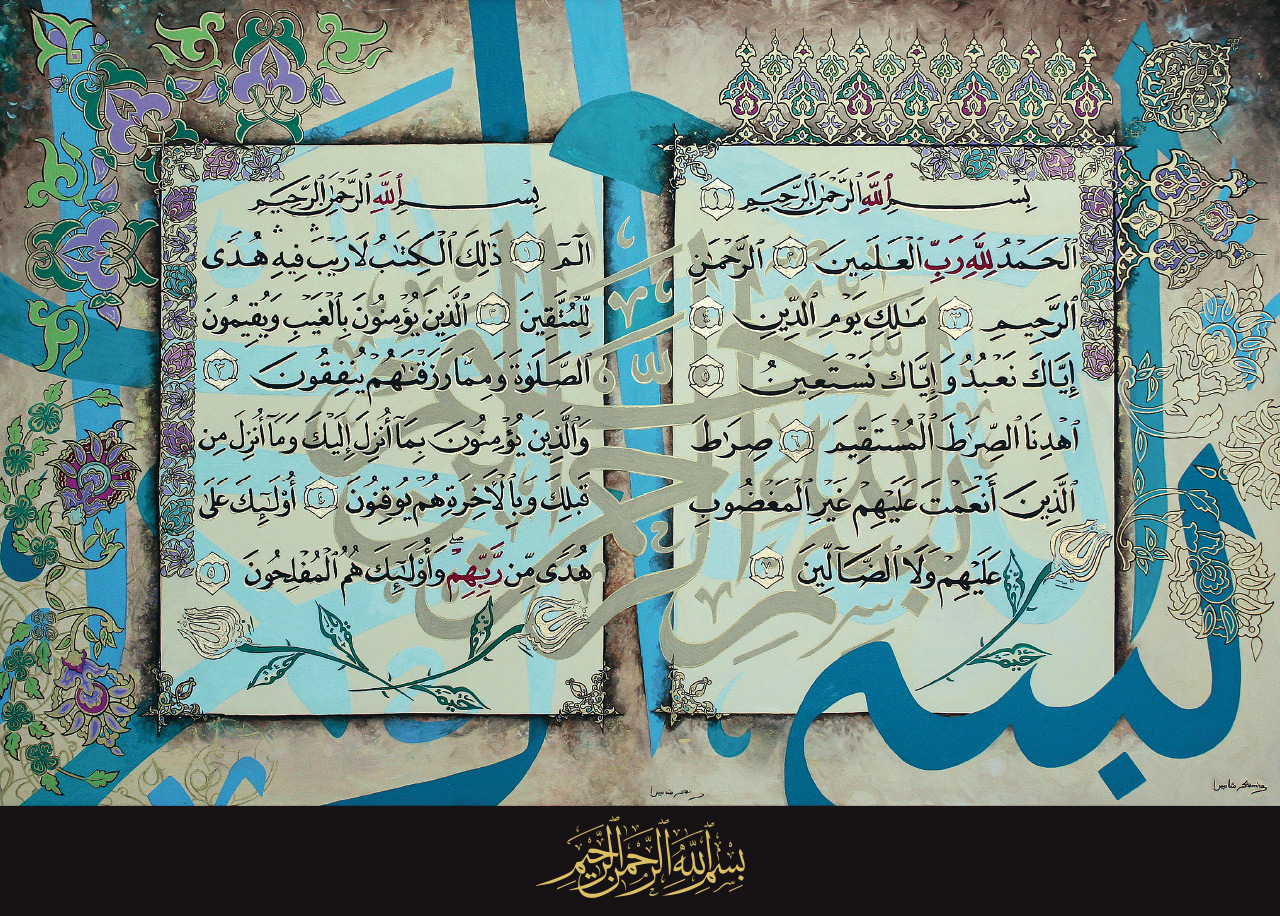 بِسْمِ ٱللَّهِ ٱلرَّحْمَٰنِ ٱلرَّحِيمِ ١
ٱلْحَمْدُ لِلَّهِ رَبِّ ٱلْعَٰلَمِينَ ٢ ٱلرَّحْمَٰنِ
ٱلرَّحِيمِ ٣ مَٰلِكِ يَوْمِ ٱلدِّينِ ٤
إِيَّاكَ نَعْبُدُ وَإِيَّاكَ نَسْتَعِينُ ٥
ٱهْدِنَا ٱلصِّرَٰطَ ٱلْمُسْتَقِيمَ ٦ صِرَٰطَ
ٱلَّذِينَ أَنْعَمْتَ عَلَيْهِمْ غَيْرِ ٱلْمَغْضُوبِ
عَلَيْهِمْ وَلَا ٱلضَّآلِّينَ ٧
بِسْمِ ٱللَّهِ ٱلرَّحْمَٰنِ ٱلرَّحِيمِ
الٓمٓ ١ ذَٰلِكَ ٱلْكِتَٰبُ لَا رَيْبَ فِيهِ هُدًى
لِّلْمُتَّقِينَ ٢ ٱلَّذِينَ يُؤْمِنُونَ بِٱلْغَيْبِ وَيُقِيمُونَ
ٱلصَّلَوٰةَ وَمِمَّا رَزَقْنَٰهُمْ يُنفِقُونَ ٣
وَٱلَّذِينَ يُؤْمِنُونَ بِمَآ أُنزِلَ إِلَيْكَ وَمَآ أُنزِلَ مِن
قَبْلِكَ وَبِٱلْءَاخِرَةِ هُمْ يُوقِنُونَ ٤ أُو۟لَٰٓئِكَ عَلَىٰ
هُدًى مِّن رَّبِّهِمْ ۖ وَأُو۟لَٰٓئِكَ هُمُ ٱلْمُفْلِحُونَ ٥
بسم الله الرحمن الرحيم
بسم
بِسْمِ اللَّهِ الرَّحْمَٰنِ الرَّحِيمِ